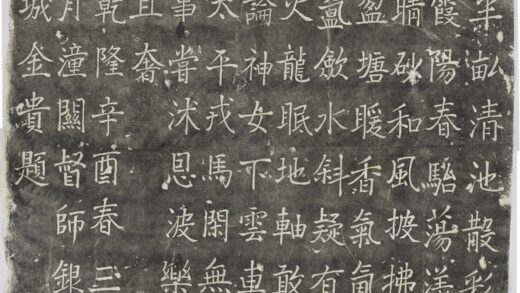 半畝清池散彩
霞陽春駘蕩漾
晴砂和風披拂
盈塘暖香氣氤
氳歛水斜疑有
火龍眠地軸敢
論神女下雲車
太平戎馬閑無
事嘗沐恩波樂
且奢
乾隆辛酉春三
月潼關督師銀
城金貴題